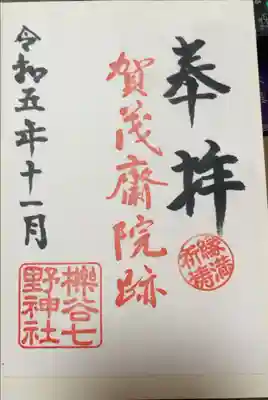 奉拝
賀茂齋院跡
令和五年十一月
櫟谷七
野神社